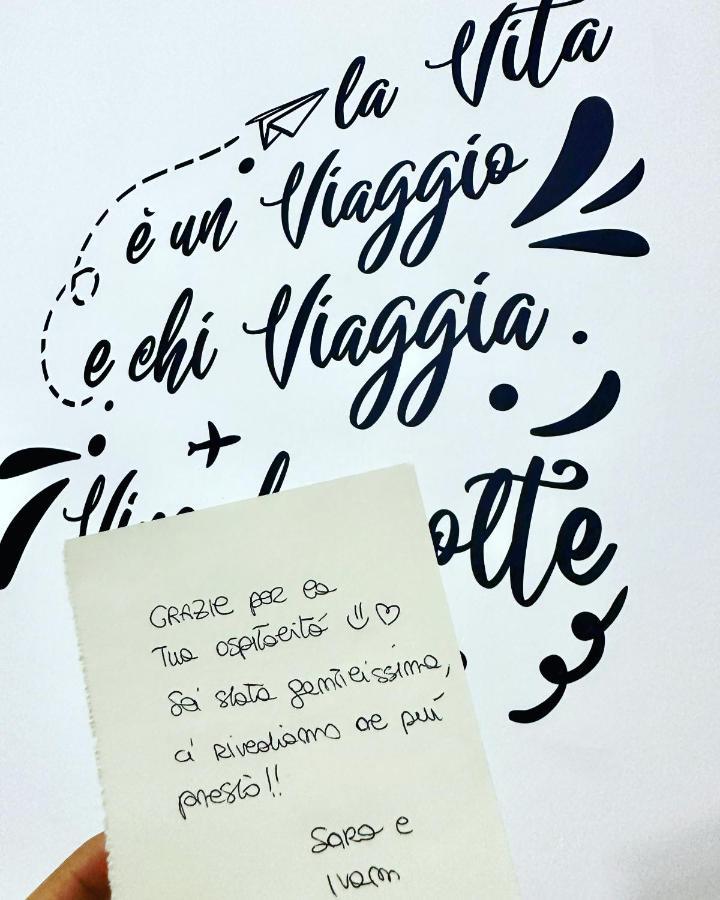 la Vita
è un Viaggio
e chi Viaggia
olte
GRAZIE per la
Tua ospitalità
Sei stata gentilissima,
ci rivediamo al più
presto!!
Sara e
Ivam